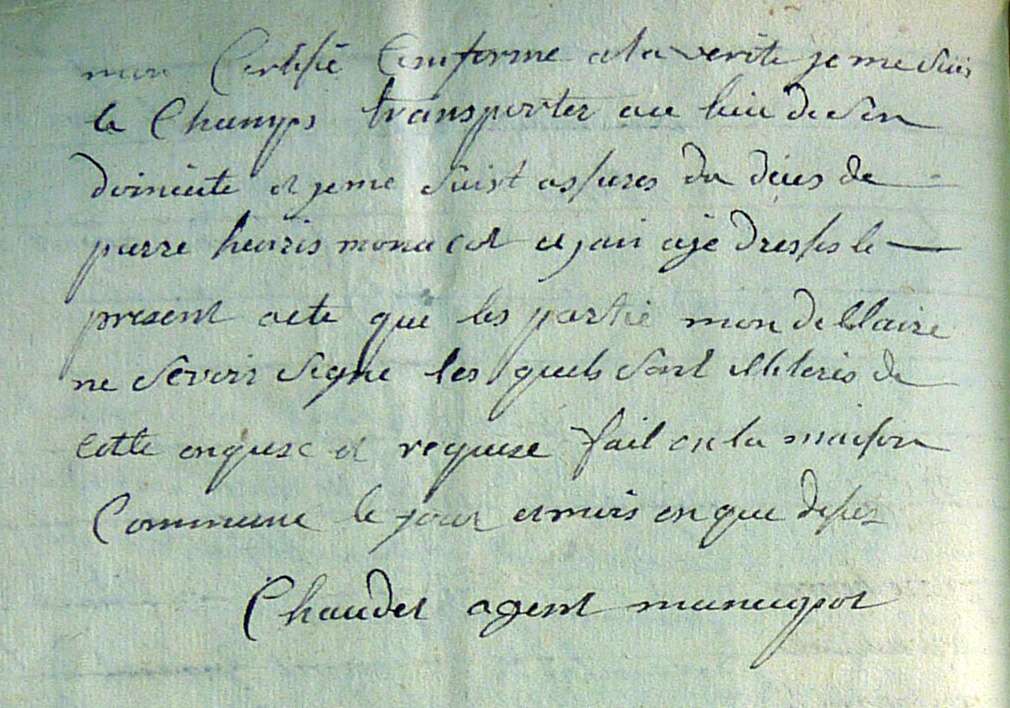 mon Certifié Conforme a la verité je me suis
le Champs transporter au lieu de son
domicile et je me suist assures du déces de
pierre henris monacot et jan aije dresses le
present acte que les partie mon declaire
ne sevoir signe les quels sont alteris de
cette enquise et requise fait en la maison
Commune le jour et mois en que desus
Chaudet agent municipal